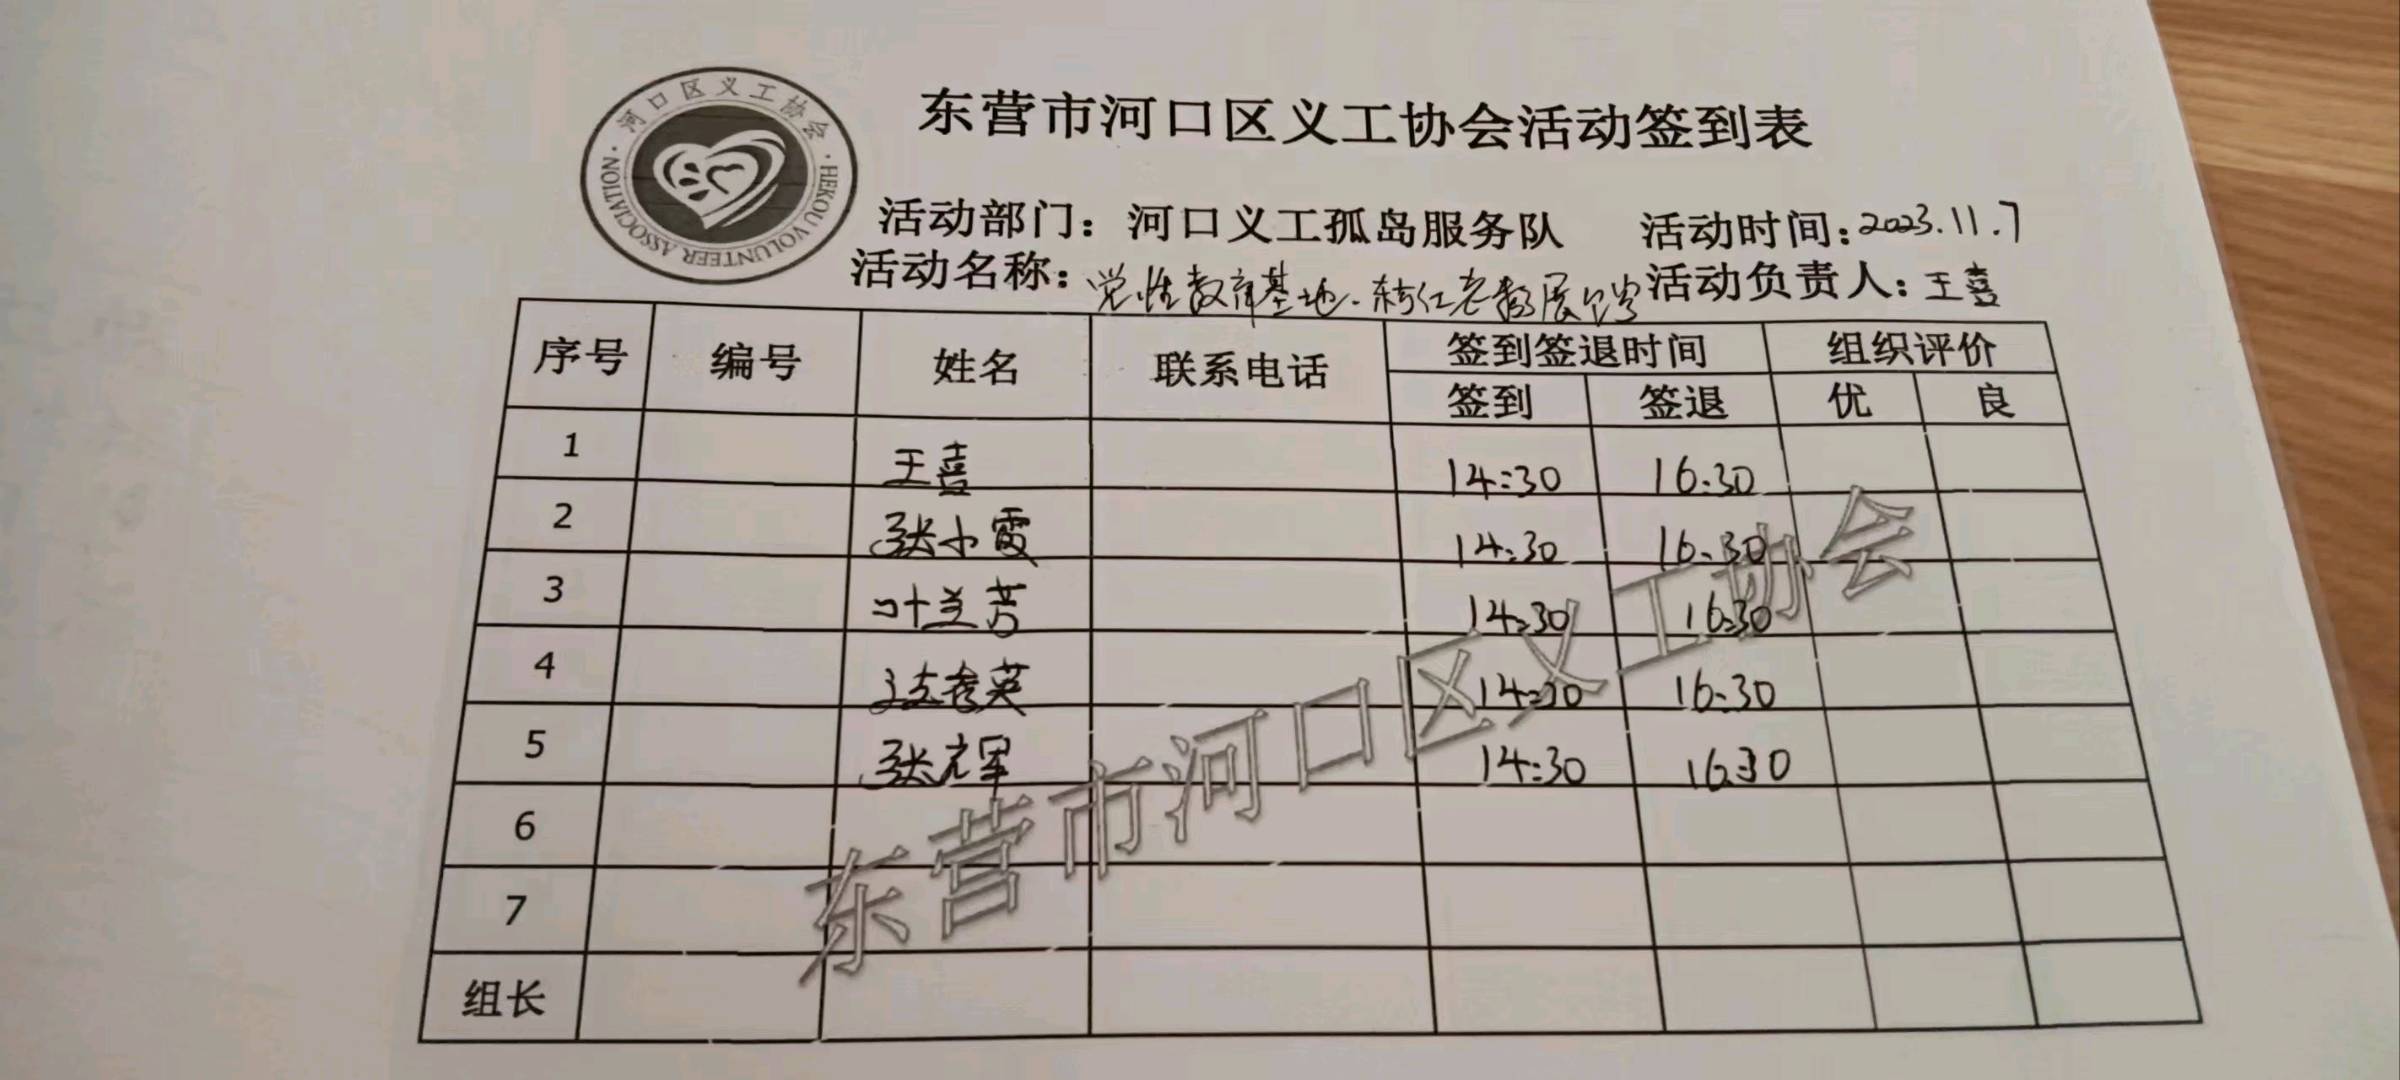 河口区义工协会
HEKOU VOLUNTEER ASSOCIATION
东营市河口区义工协会活动签到表
活动部门：河口义工孤岛服务队 活动时间：2023.11.7
活动名称：党性教育基地 活动负责人：王喜
序号 编号 姓名 联系电话 签到签退时间 组织评价
签到 签退 优 良
1 王喜 14:30 16:30
2 张小霞 14:30 16:30
3 叶兰芳 14:30 16:30
4 14:30 16:30
5 张元军 14:30 16:30
6
7
组长
东营市河口区义工协会